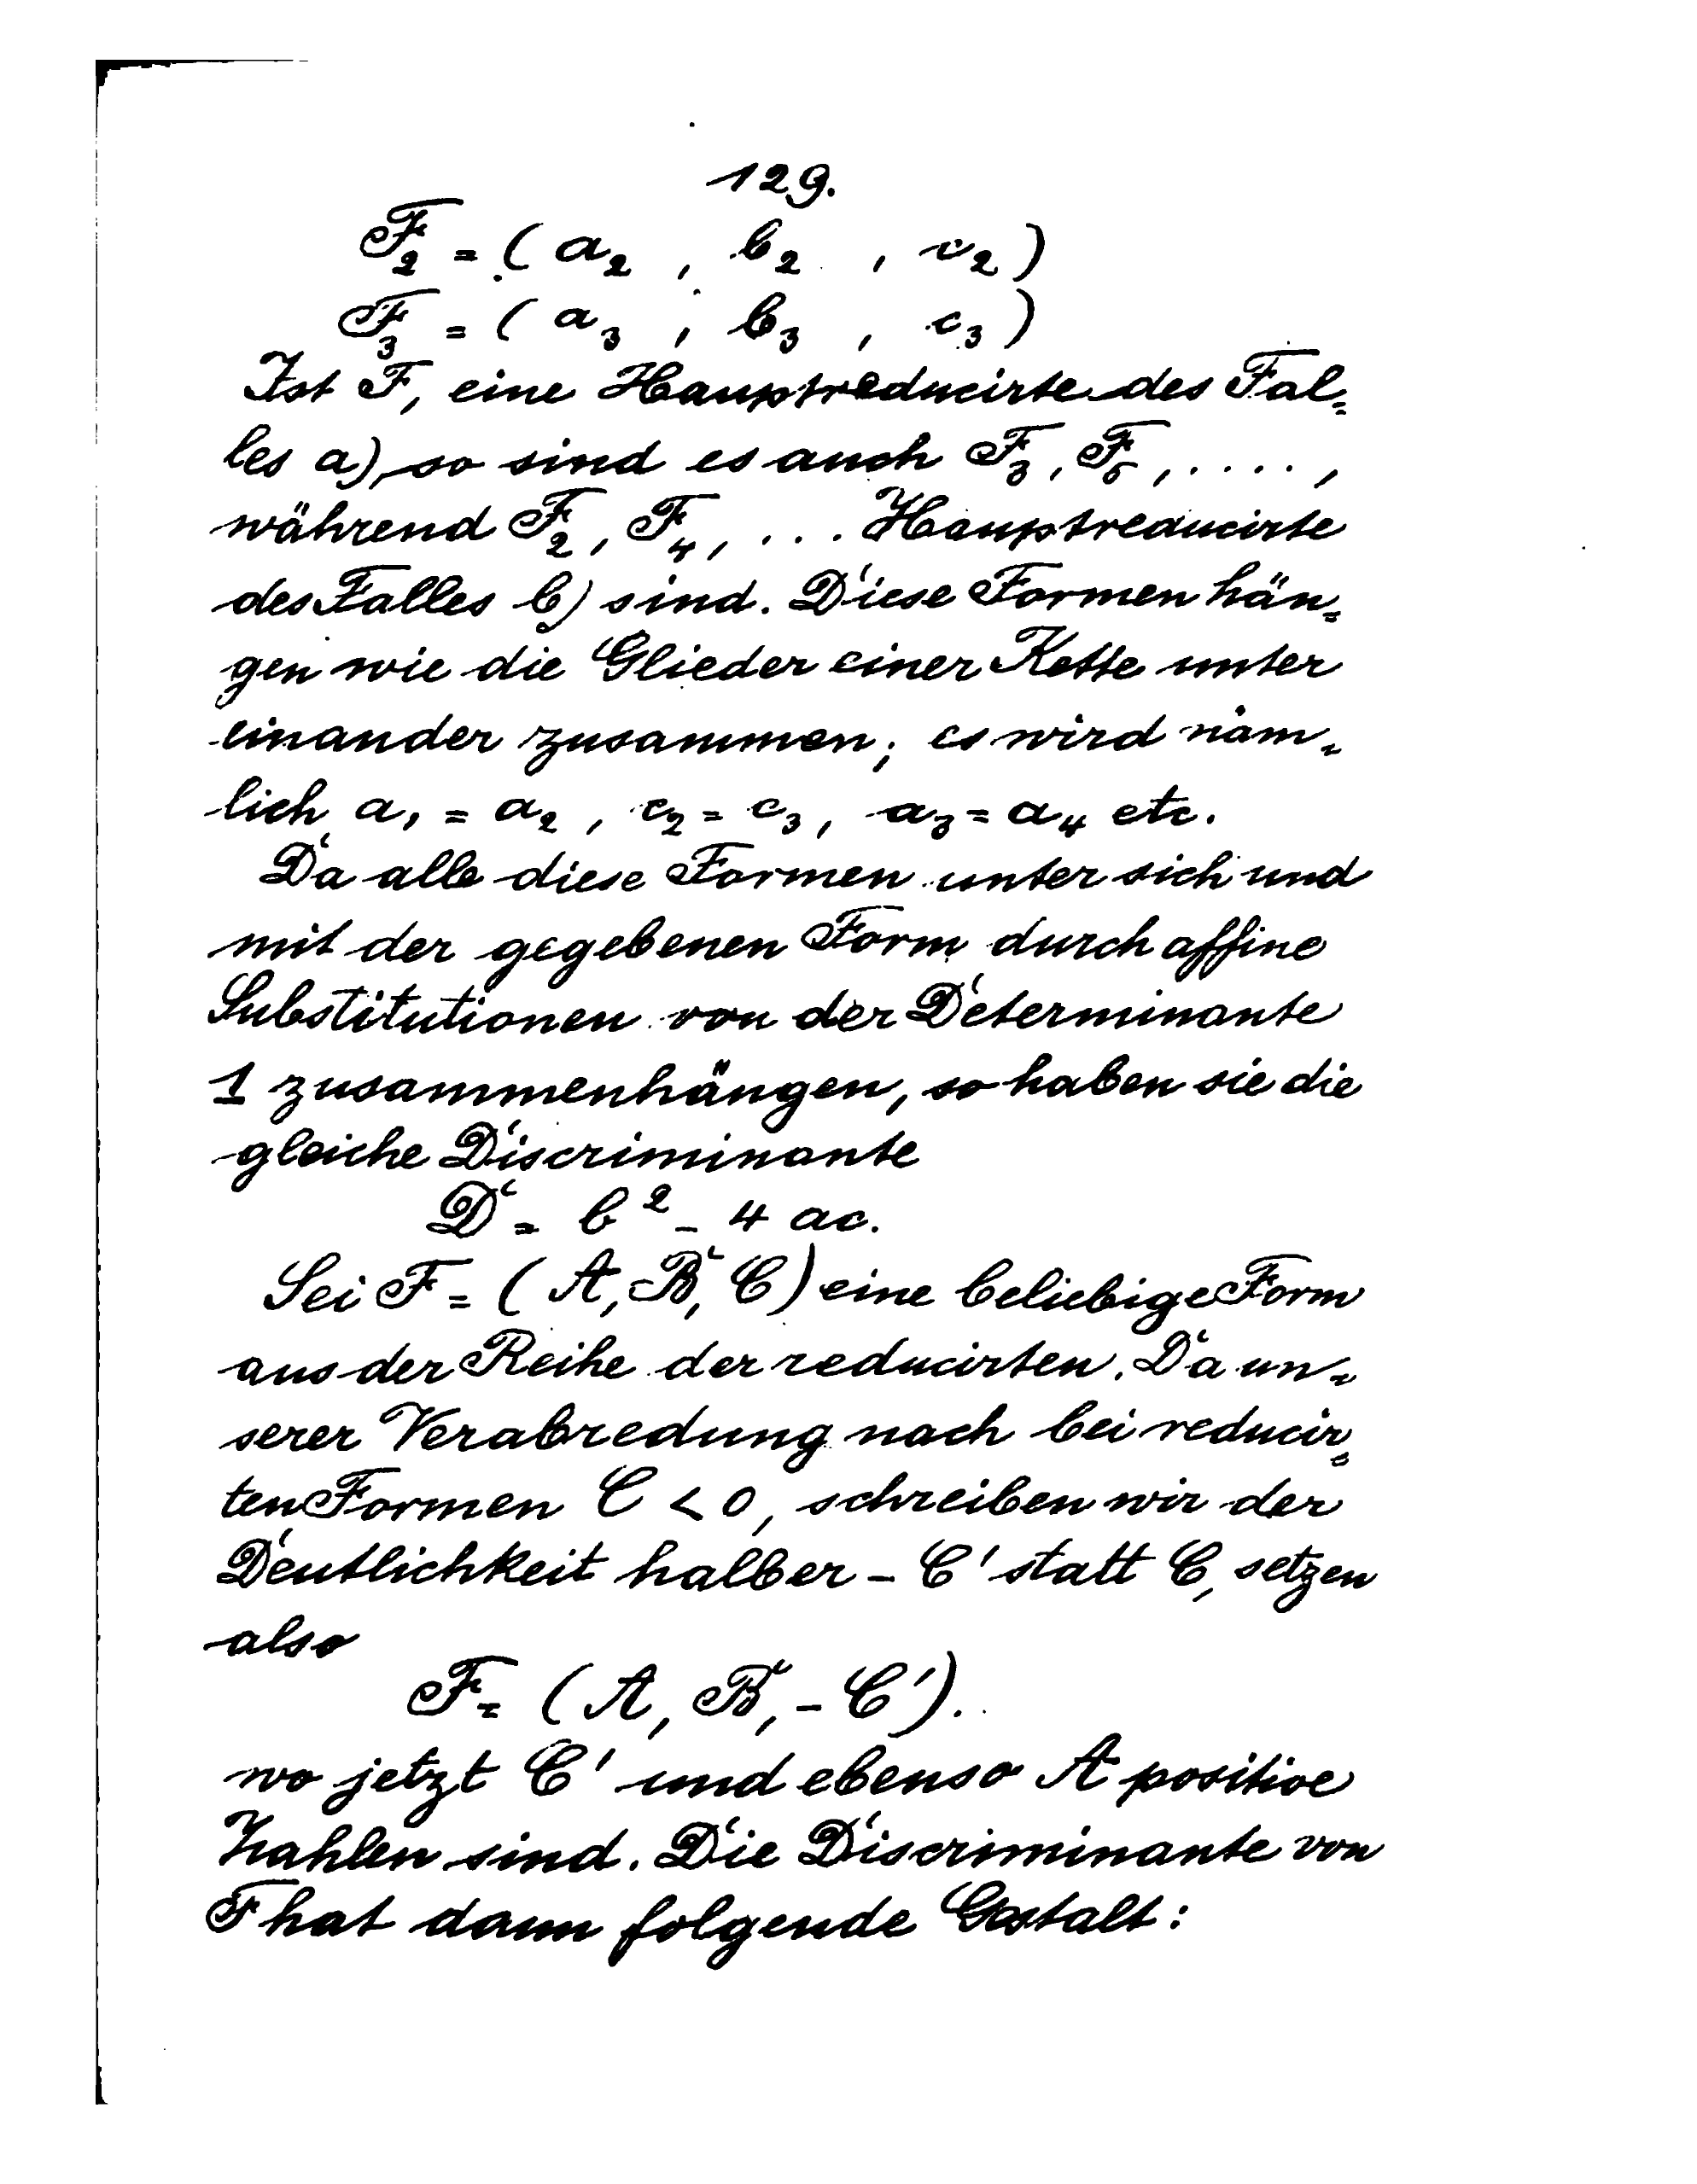 129.
F₂ = ( a₂ , b₂ , c₂ )
F₃ = ( a₃ , b₃ , c₃ )
Ist F₁ eine Hauptreducirte des Fal=
les a), so sind es auch F₃, F₅, . . . . ,
während F₂, F₄, . . . Hauptreducirte
des Falles b) sind. Diese Formen hän=
gen wie die Glieder einer Kette unter
einander zusammen; es wird näm=
lich a₁ = a₂ , c₂ = c₃, a₃ = a₄ etc.
Da alle diese Formen unter sich und
mit der gegebenen Form durch affine
Substitutionen von der Determinante
1 zusammenhängen, so haben sie die
gleiche Discriminante
D = b² - 4 ac.
Sei F = ( A, B, C ) eine beliebige Form
aus der Reihe der reducirten. Da un=
serer Verabredung nach bei reducir=
ten Formen C < 0, schreiben wir der
Deutlichkeit halber - C' statt C, setzen
also
F = ( A, B, - C' ).
wo jetzt C' und ebenso A positive
Zahlen sind. Die Discriminante von
F hat dann folgende Gestalt: